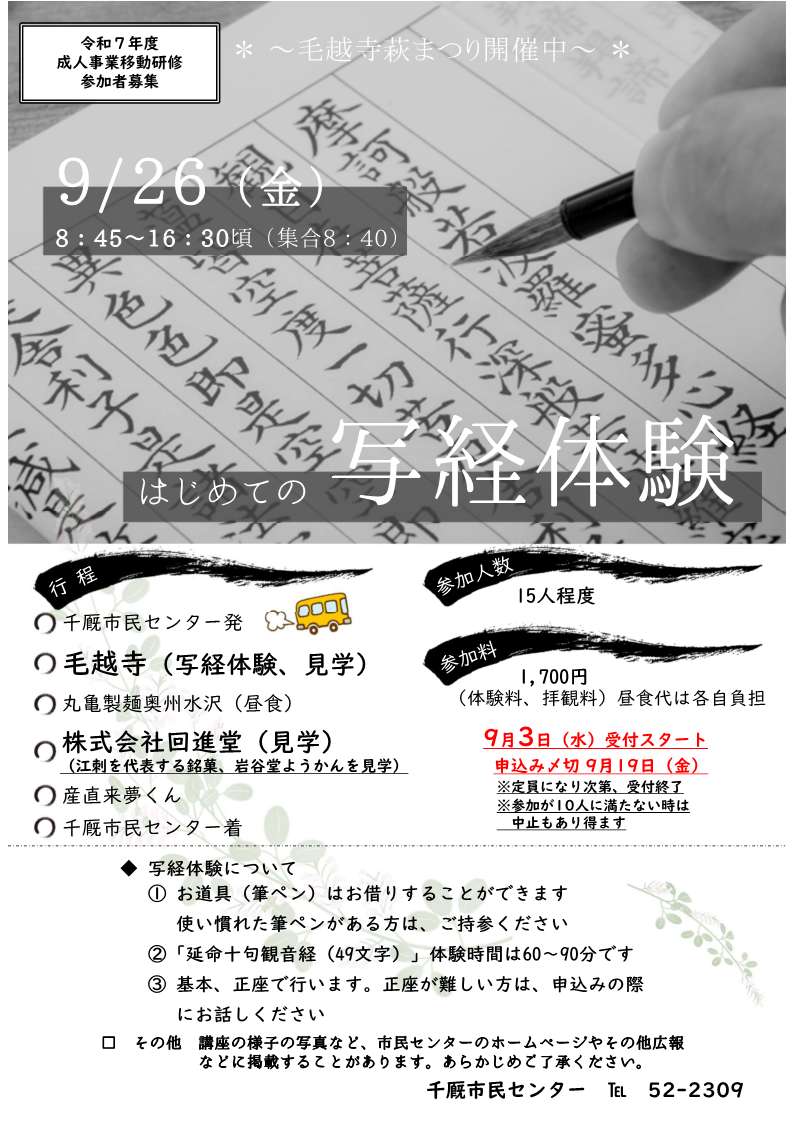 令和７年度
成人事業移動研修
参加者募集
＊ ～毛越寺萩まつり開催中～ ＊
9/26（金）
8：45～16：30頃（集合8：40）
はじめての 写経体験
行程
千厩市民センター発
毛越寺（写経体験、見学）
丸亀製麺奥州水沢（昼食）
株式会社回進堂（見学）
（江刺を代表する銘菓、岩谷堂ようかんを見学）
産直来夢くん
千厩市民センター着
参加人数
15人程度
参加料
1,700円
（体験料、拝観料）昼食代は各自負担
9月3日（水）受付スタート
申込み〆切 9月19日（金）
※定員になり次第、受付終了
※参加が10人に満たない時は
中止もあり得ます
◆ 写経体験について
① お道具（筆ペン）はお借りすることができます
使い慣れた筆ペンがある方は、ご持参ください
②「延命十句観音経（49文字）」体験時間は60～90分です
③ 基本、正座で行います。正座が難しい方は、申込みの際
にお話しください
□ その他 講座の様子の写真など、市民センターのホームページやその他広報
などに掲載することがあります。あらかじめご了承ください。
千厩市民センター ℡ 52-2309